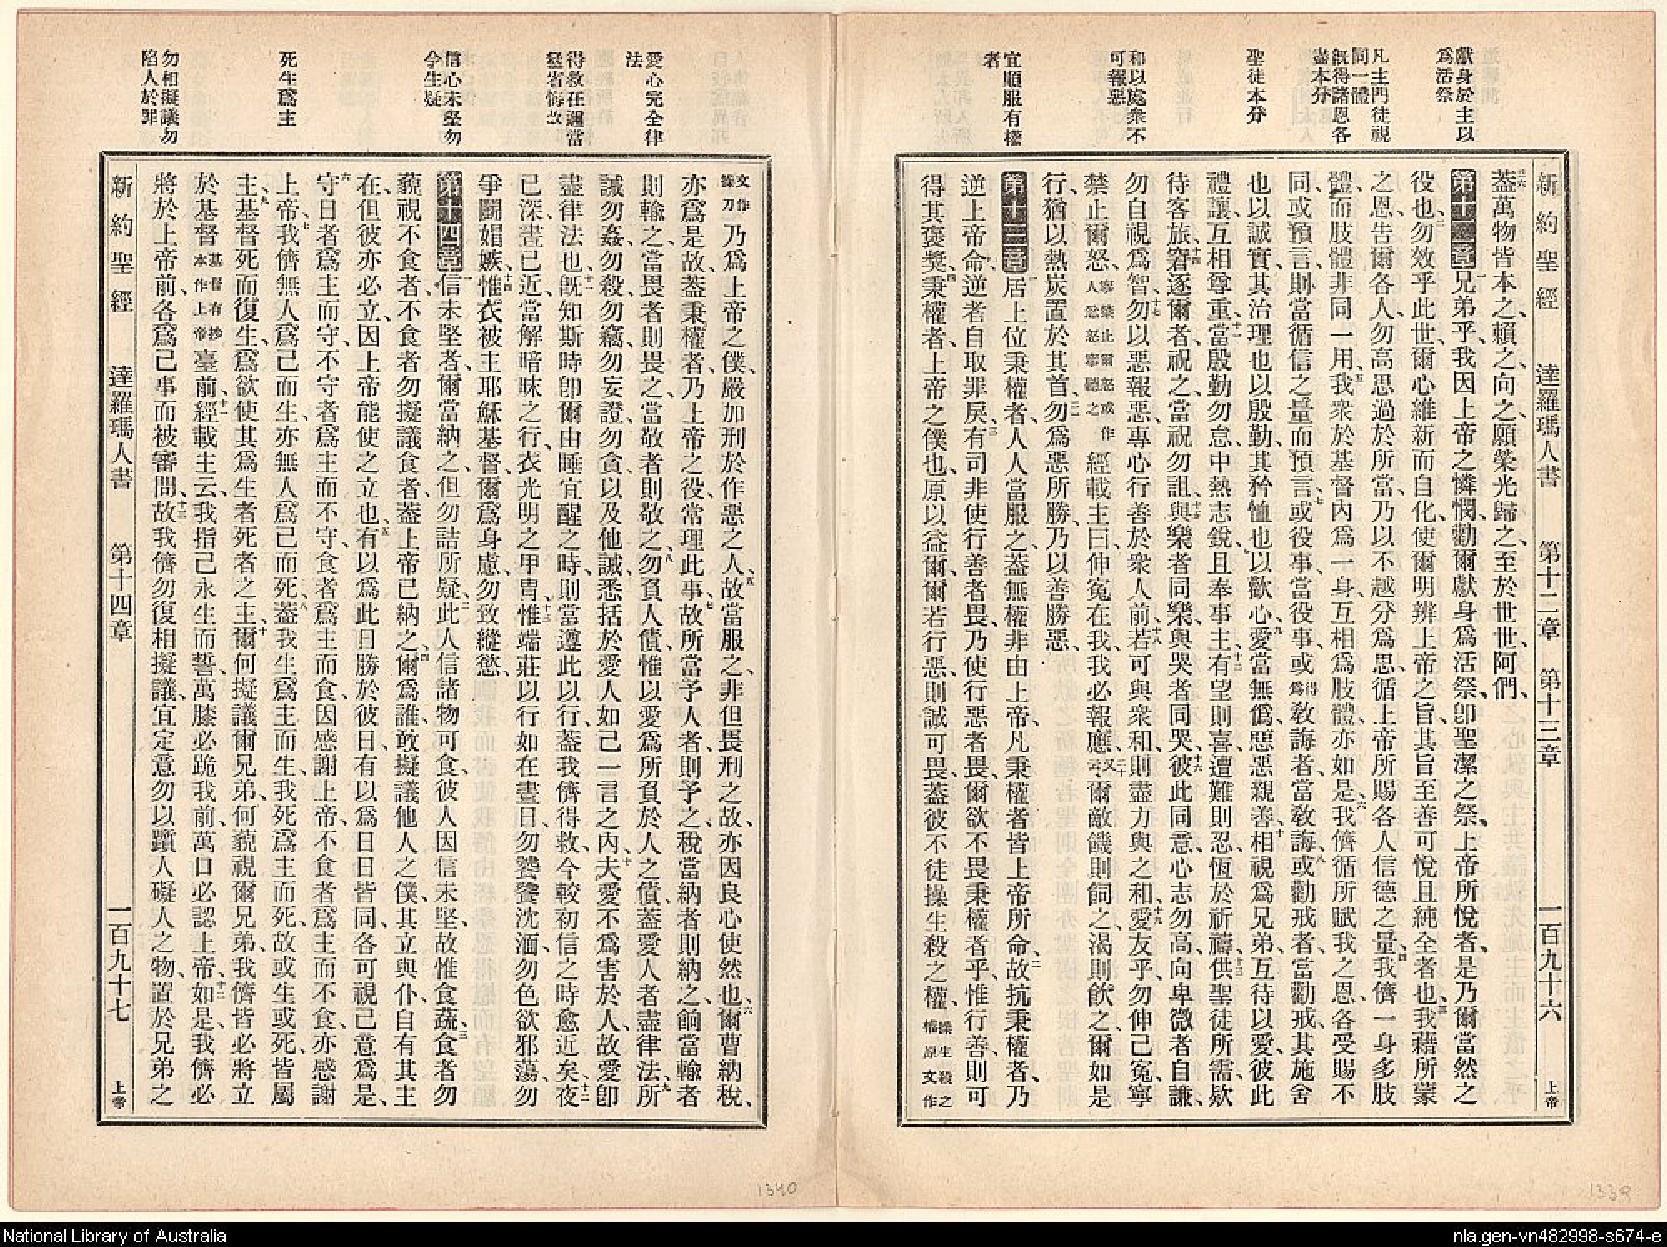 獻身於主以
爲活祭
凡主門徒視
同一體
旣得諸恩各
盡本分
聖徒本分
和以處衆不
可報惡
宜順服有權
者
新約聖經 達羅瑪人書 第十二章 第十三章 一百九十六 上帝
三六蓋萬物皆本之、賴之、向之、願榮光歸之、至於世世、阿們、
第十二章一兄弟乎、我因上帝之憐憫、勸爾獻身爲活祭、卽聖潔之祭、上帝所悅者、是乃爾當然之
役也、二勿效乎此世、爾心維新而自化、使爾明辨上帝之旨、其旨至善可悅且純全者也、三我藉所蒙
之恩、告爾各人、勿高思過於所當、乃以不越分爲思、循上帝所賜各人信德之量、四我儕一身多肢
體、而肢體非同一用、五我衆於基督內爲一身、互相爲肢體、亦如是、六我儕循所賦我之恩、各受賜不
同、或預言、則當循信之量而預言、七或役事、當役事、或爲敎得誨者、當敎誨、八或勸戒者、當勸戒、其施舍
也以誠實、其治理也以殷勤、其矜恤也以歡心、九愛當無僞、惡惡親善、十相視爲兄弟、互待以愛、彼此
禮讓、互相尊重、十一當殷勤勿怠、中熱志銳、且奉事主、十二有望則喜、遭難則忍、恆於祈禱、十三供聖徒所需、欵
待客旅、十四窘逐爾者、祝之、當祝勿詛、十五與樂者同樂、與哭者同哭、十六彼此同意、心志勿高、向卑微者自謙、
勿自視爲智、十七勿以惡報惡、專心行善於衆人前、十八若可與衆和、則盡力與之和、十九愛友乎、勿伸己冤、寧
禁止爾怒、寧禁止爾怒或作人忿怒寧聽之經載主曰、伸冤在我、我必報應、二十又云、爾敵饑則飼之、渴則飮之、爾如是
行、猶以熱炭置於其首、二一勿爲惡所勝、乃以善勝惡、
第十三章一居上位秉權者、人人當服之、蓋無權非由上帝、凡秉權者、皆上帝所命、二故抗秉權者、乃
逆上帝命、逆者自取罪戾、三有司非使行善者畏、乃使行惡者畏、爾欲不畏秉權者乎、惟行善則可
得其褒獎、四秉權者、上帝之僕也、原以益爾、爾若行惡、則誠可畏、蓋彼不徒操生殺之權、操生殺之權原文作
愛心完全律
法
得救在邇當
猛省悔改
信心未堅勿
令生疑
死生爲主
勿相擬議勿
陷人於罪
文作操刀乃爲上帝之僕、嚴加刑於作惡之人、五故當服之、非但畏刑之故、亦因良心使然也、六爾曹納稅、
亦爲是故、蓋秉權者、乃上帝之役、常理此事、七故所當予人者、則予之、稅當納者則納之、餉當輸者
則輸之、當畏者則畏之、當敬者則敬之、八勿負人債、惟以愛爲所負於人之債、蓋愛人者、盡律法、九所
誡勿姦、勿殺、勿竊、勿妄證、勿貪、以及他誡、悉括於愛人如己一言之內、十夫愛不爲害於人、故愛卽
盡律法也、十一旣知斯時卽爾由睡宜醒之時、則當遵此以行、蓋我儕得救、今較初信之時愈近矣、十二夜
已深、晝已近、當解暗昧之行、衣光明之甲冑、十三惟端莊以行、如在晝日、勿饕餮沈湎、勿色欲邪蕩、勿
爭鬬媢嫉、十四惟衣被主耶穌基督、爾爲身慮、勿致縱慾、
第十四章一信未堅者、爾當納之、但勿詰所疑、二此人信諸物可食、彼人因信未堅、故惟食蔬、三食者勿
藐視不食者、不食者勿擬議食者、蓋上帝已納之、四爾爲誰、敢擬議他人之僕、其立與仆、自有其主
在、但彼亦必立、因上帝能使之立也、五有以爲此日勝於彼日、有以爲日日皆同、各可視己意爲是、
六守日者、爲主而守、不守者、爲主而不守、食者、爲主而食、因感謝上帝、不食者、爲主而不食、亦感謝
上帝、七我儕無人爲己而生、亦無人爲己而死、八蓋我生爲主而生、我死爲主而死、故或生或死、皆屬
主、九基督死而復生、爲欲使其爲生者死者之主、十爾何擬議爾兄弟、何藐視爾兄弟、我儕皆必將立
於基督基督有抄本作上帝臺前、十一經載主云、我指己永生而誓、萬膝必跪我前、萬口必認上帝、十二如是、我儕必
將於上帝前、各爲己事而被審問、十三故我儕勿復相擬議、宜定意勿以躓人礙人之物、置於兄弟之
新約聖經 達羅瑪人書 第十四章 一百九十七 上帝
1340
1339
National Library of Australia
nla.gen-vn482998-s674-e